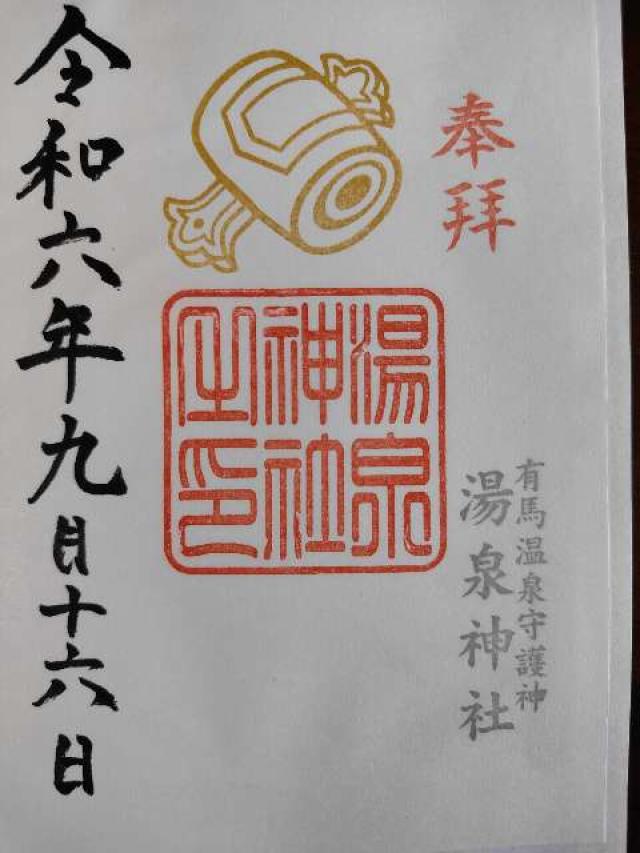 奉拝
有馬温泉守護神
湯泉神社
湯泉
神社
之印
令和六年九月十六日